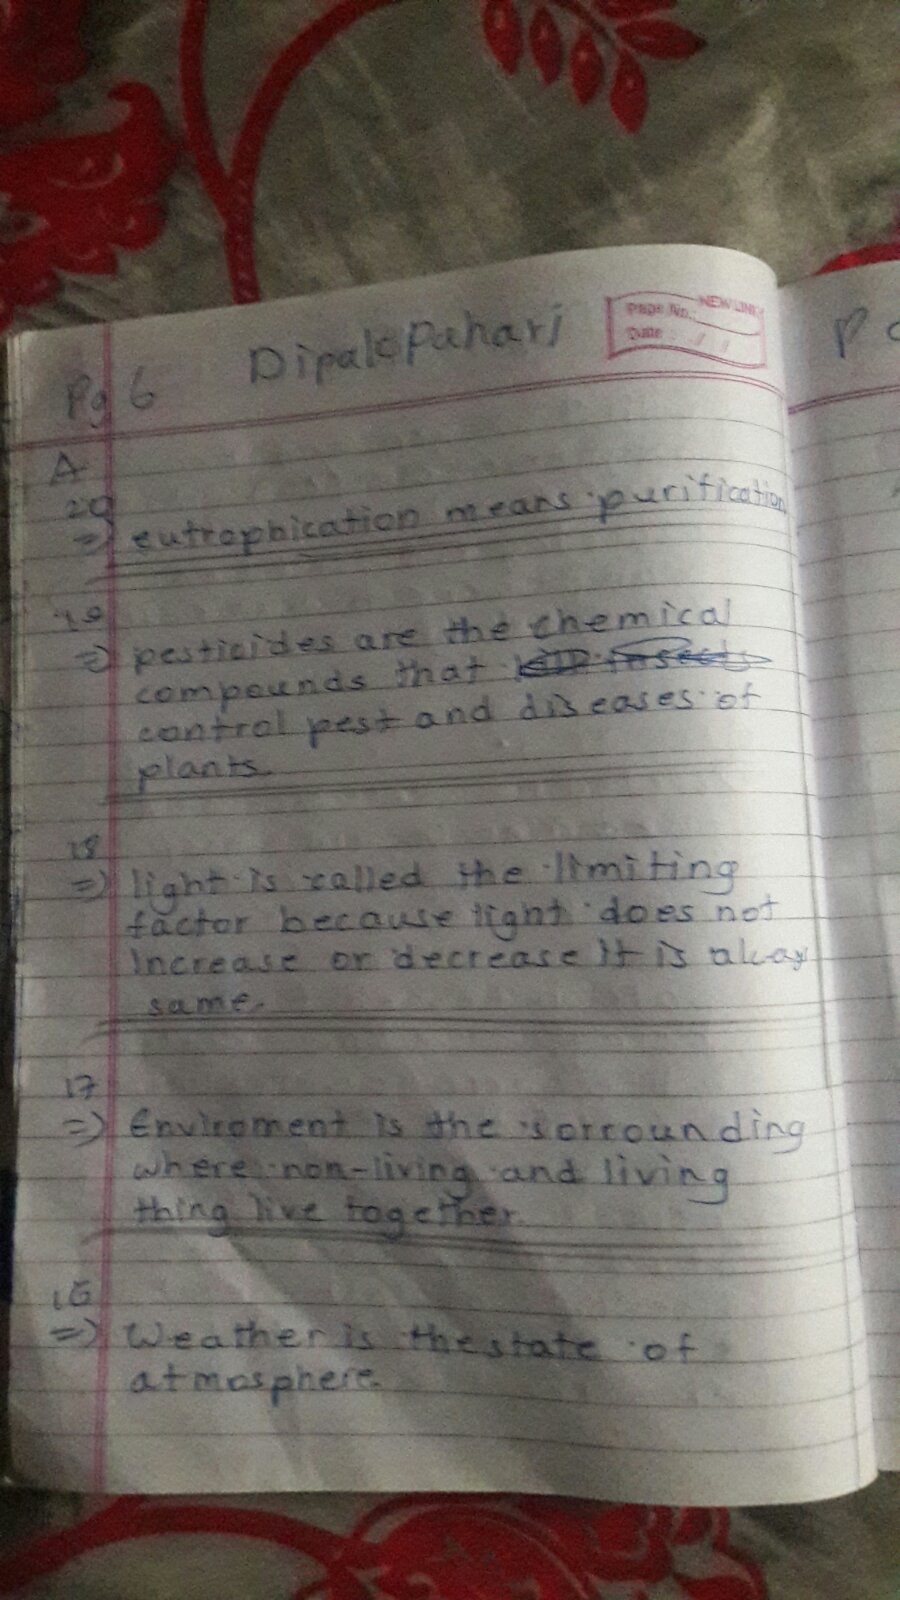 Pg 6
Dipak Pahari
NEW LINK
Page No.:
Date : / /
A
20
=) eutrophication means purification
19
=) pesticides are the chemical
compounds that
control pest and diseases of
plants.
18
=) light is called the limiting
factor because light does not
Increase or decrease It is alway
same.
17
=) Enviroment is the sorrounding
where non-living and living
thing live together.
16
=) Weather is the state of
atmosphere.
P